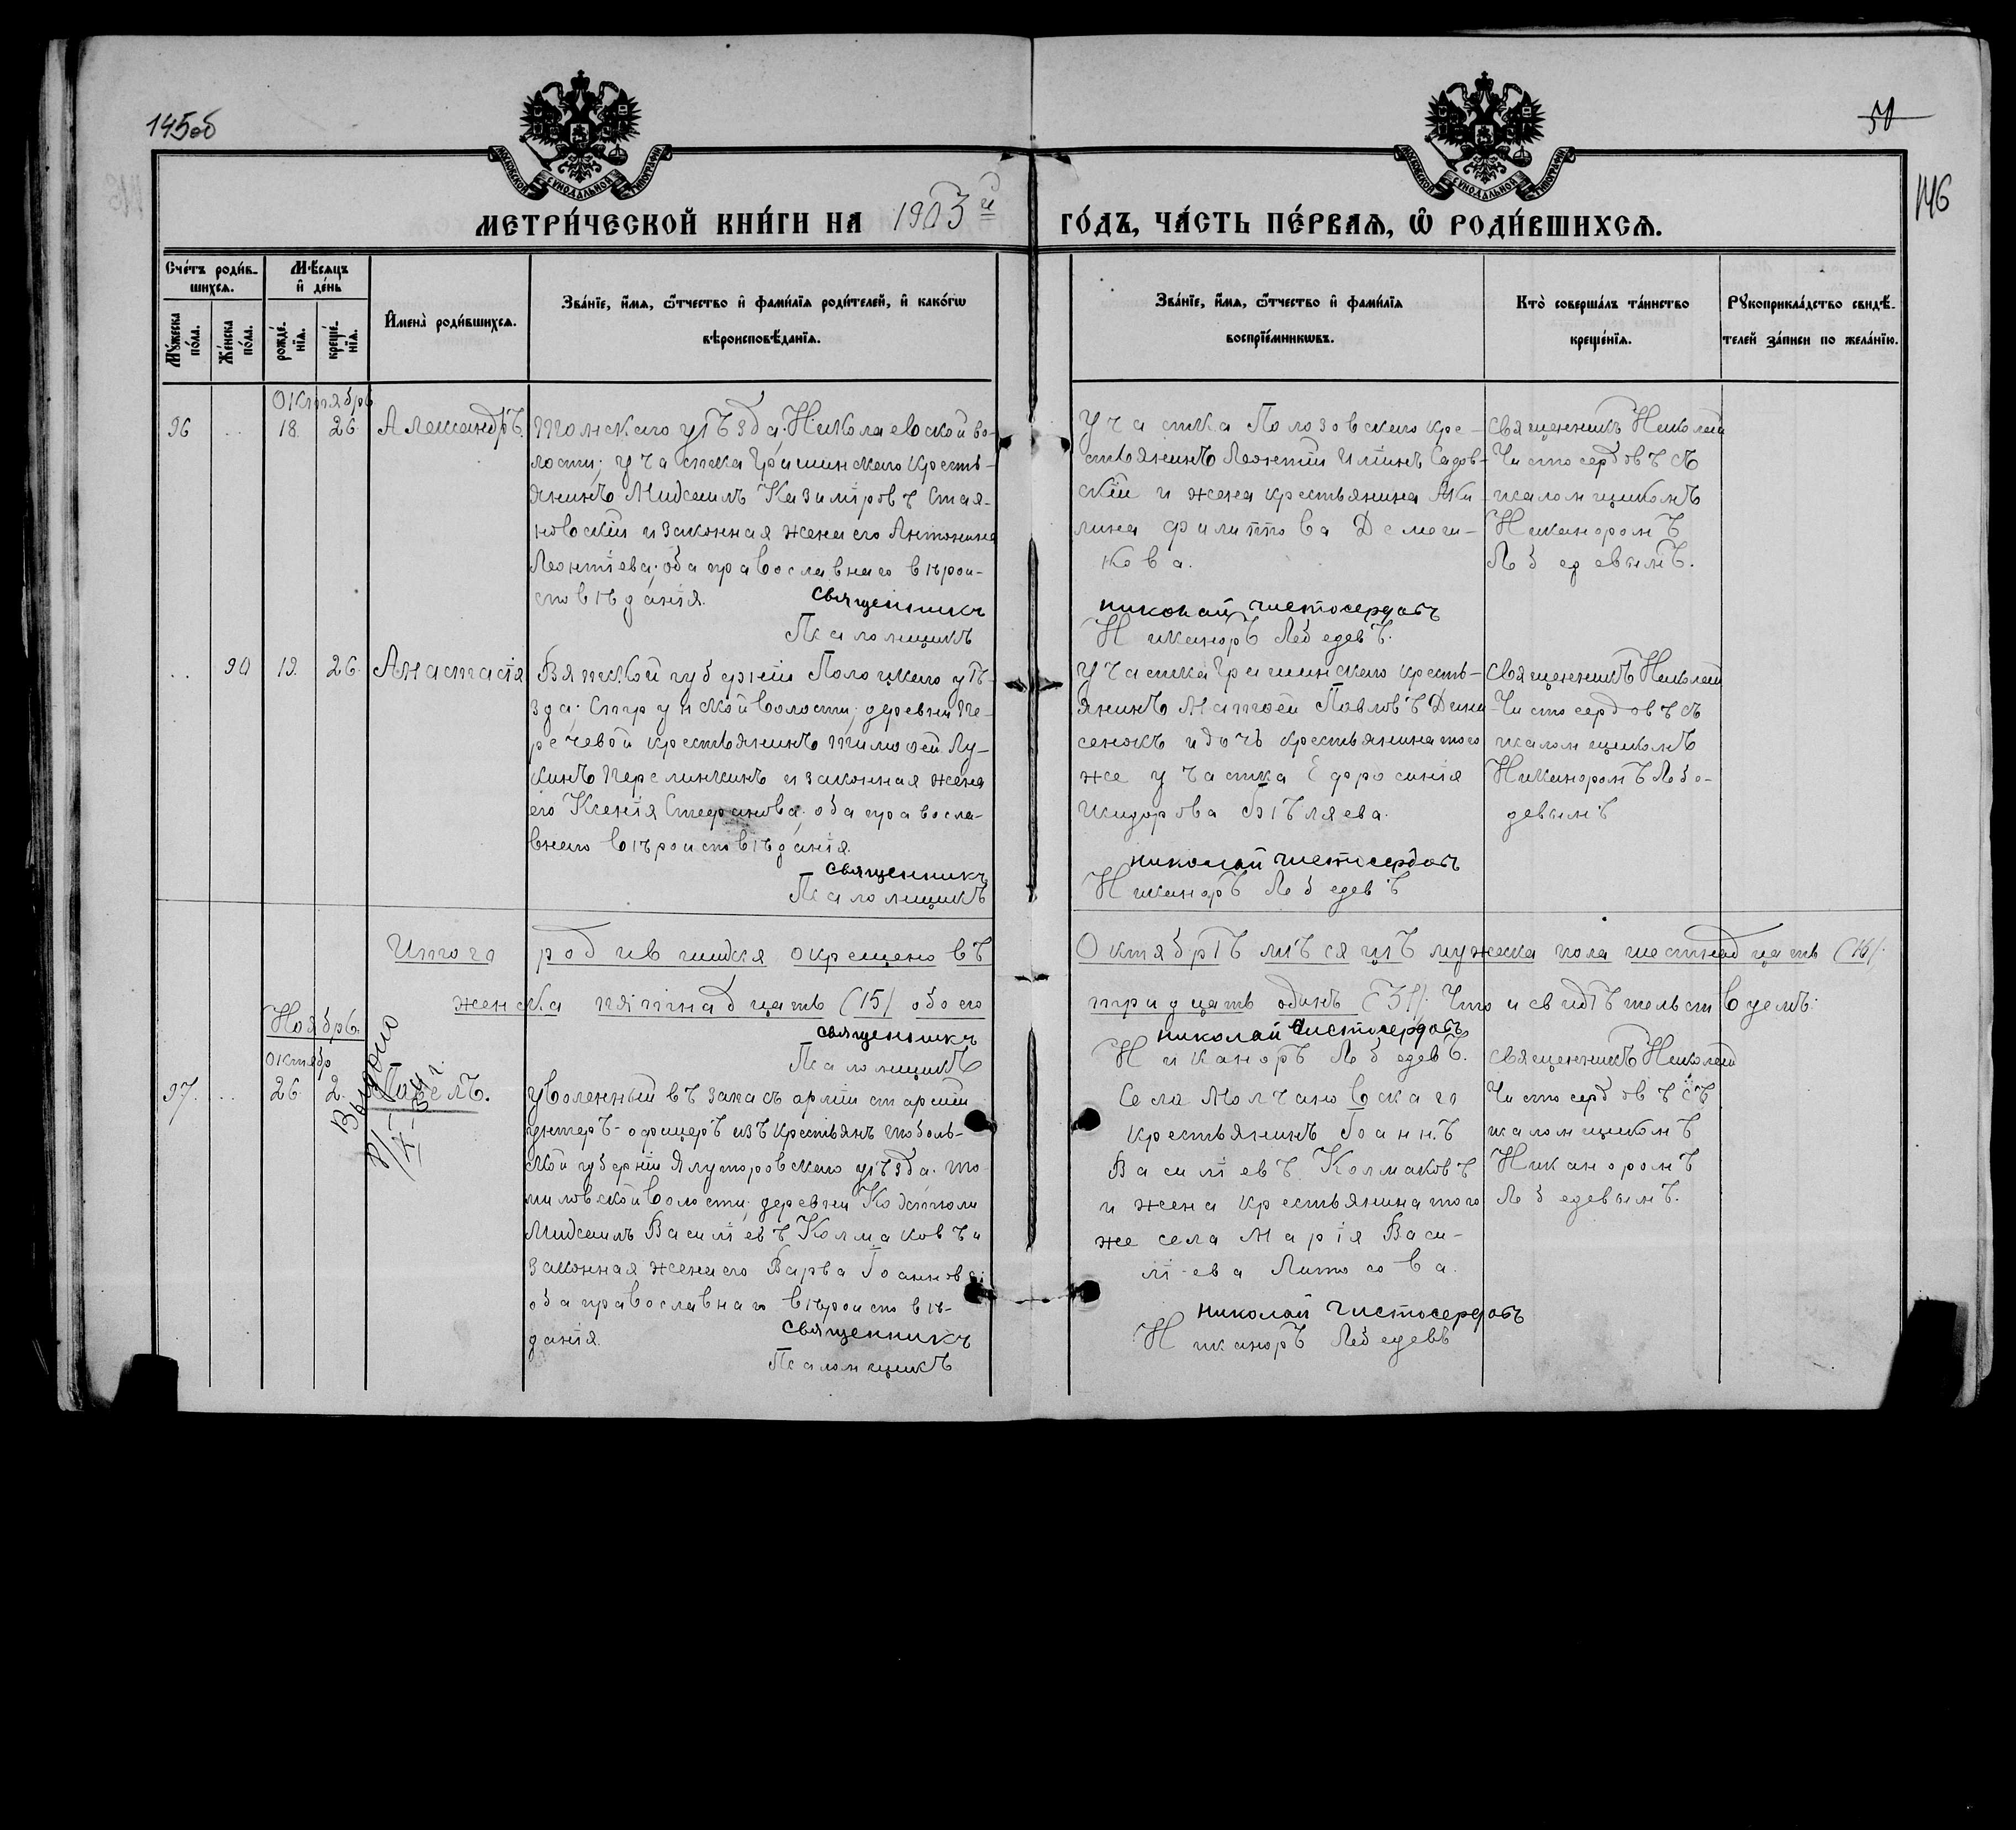 145об
50
146
МОСКОВСКОЙ СѴНОДАЛЬНОЙ ТИПОГРАФІИ
МОСКОВСКОЙ СѴНОДАЛЬНОЙ ТИПОГРАФІИ
МЕТРИ́ЧЕСКОЙ КНИ́ГИ НА 1903й
ГО́ДЪ, ЧА́СТЬ ПЕ́РВАѦ, Ѡ РОДИ́ВШИХСѦ.
Сче́тъ роди́в-
шихсѧ.
Мꙋ́жеска по́ла.
Же́нска по́ла.
Мѣ́сѧцъ и де́нь
рожде́-
нїѧ.
креще́-
нїѧ.
Имена̀ роди́вшихсѧ.
Зва́нїе, и́мѧ, ѻ́тчество и фами́лїѧ роди́телей, и како́гѡ
вѣроисповѣ́данїѧ.
Зва́нїе, и́мѧ, ѻ́тчество и фами́лїѧ
воспрїе́мникѡвъ.
Кто̀ соверша́лъ та́инство
креще́нїѧ.
Рꙋкоприкла́дство свидѣ́-
телей за́писи по жела́нїю.
Октябрь
96 .. 18. 26 Александръ.
Томскаго уѣзда Николаевской во-
лости, участка Гришинскаго кресть-
янинъ Михаилъ Казиміровъ Стая-
новскій и законная жена его Антонина
Леонтіева, оба православнаго вѣрои-
сповѣданія.
Священникъ
Псаломщикъ
Участка Полозовскаго кре-
стьянинъ Леонтій Иліинъ Садов-
скій и жена крестьянина Аки-
лина Филиппова
кова.
Николай Чистосердовъ
Никаноръ Лебедевъ.
Священникъ Николай
Чистосердовъ съ
псаломщикомъ
Никаноромъ
Лебедевымъ.
.. 90 19. 26. Анастасія
Вятской губерніи уѣ-
зда, волости, деревни Пе-
речевой крестьянинъ Тимоѳей Лу-
кинъ и законная жена
его Ксенія Стефанова, оба правосла-
внаго вѣроисповѣданія.
Священникъ
Псаломщикъ
Участка Гришинскаго кресть-
янинъ Матѳей Павловъ Дени-
сенокъ и дочь крестьянина того
же участка Ефросинія
Исидорова Бѣляева.
Николай Чистосердовъ
Никаноръ Лебедевъ
Священникъ Николай
Чистосердовъ съ
псаломщикомъ
Никаноромъ Лебе-
девымъ
Итого родившихся окрещено въ
Октябрѣ мѣсяцѣ мужеска пола шестнадцать (16),
женска пятнадцать (15) обоего
тридцать одинъ (31). Что и свидѣтельствуемъ:
Священникъ
Псаломщикъ
Николай Чистосердовъ
Никаноръ Лебедевъ.
Ноябрь.
Октябр.
97. .. 26 2. Павелъ.
Выдано
Уволенный въ запасъ арміи старшій
унтеръ-офицеръ изъ крестьянъ Тоболь-
ской губерніи Ялуторовскаго уѣзда, То-
миловской волости, деревни
Михаилъ Василіевъ Колмаковъ и
законная жена его Варва Іоаннова
оба православнаго вѣроисповѣ-
данія.
Священникъ
Псаломщикъ
Села Молчановскаго
крестьянинъ Іоаннъ
Василіевъ Колмаковъ
и жена крестьянина того
же села Марія Васи-
ліева
Николай Чистосердовъ
Никаноръ Лебедевъ
Священникъ Николай
Чистосердовъ съ
псаломщикомъ
Никаноромъ
Лебедевымъ.